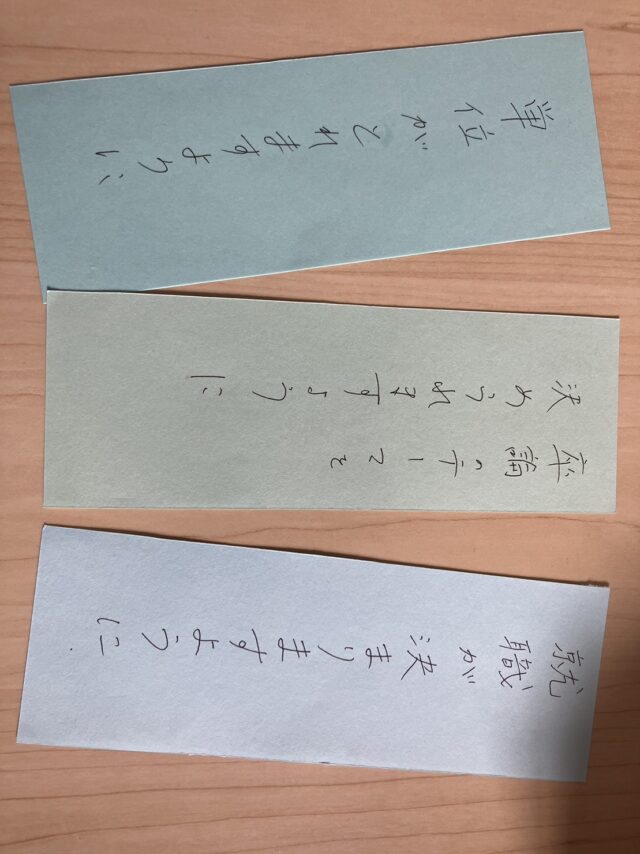 就職が決まりますように
卒論のテーマを
決められますように
単位がとれますように